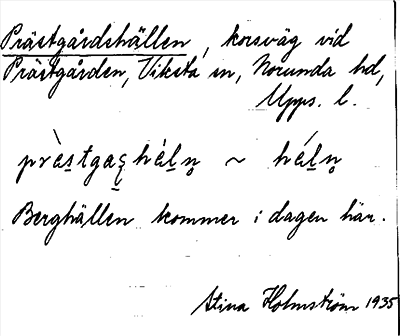 Prästgårdshällen, korsväg vid
Prästgården, Viksta sn, Norunda hd,
Upps. l.
pràs̲tgaʂhál̲n̥ ~ hál̲n̥
Berghällen kommer i dagen här.
Stina Holmström 1935